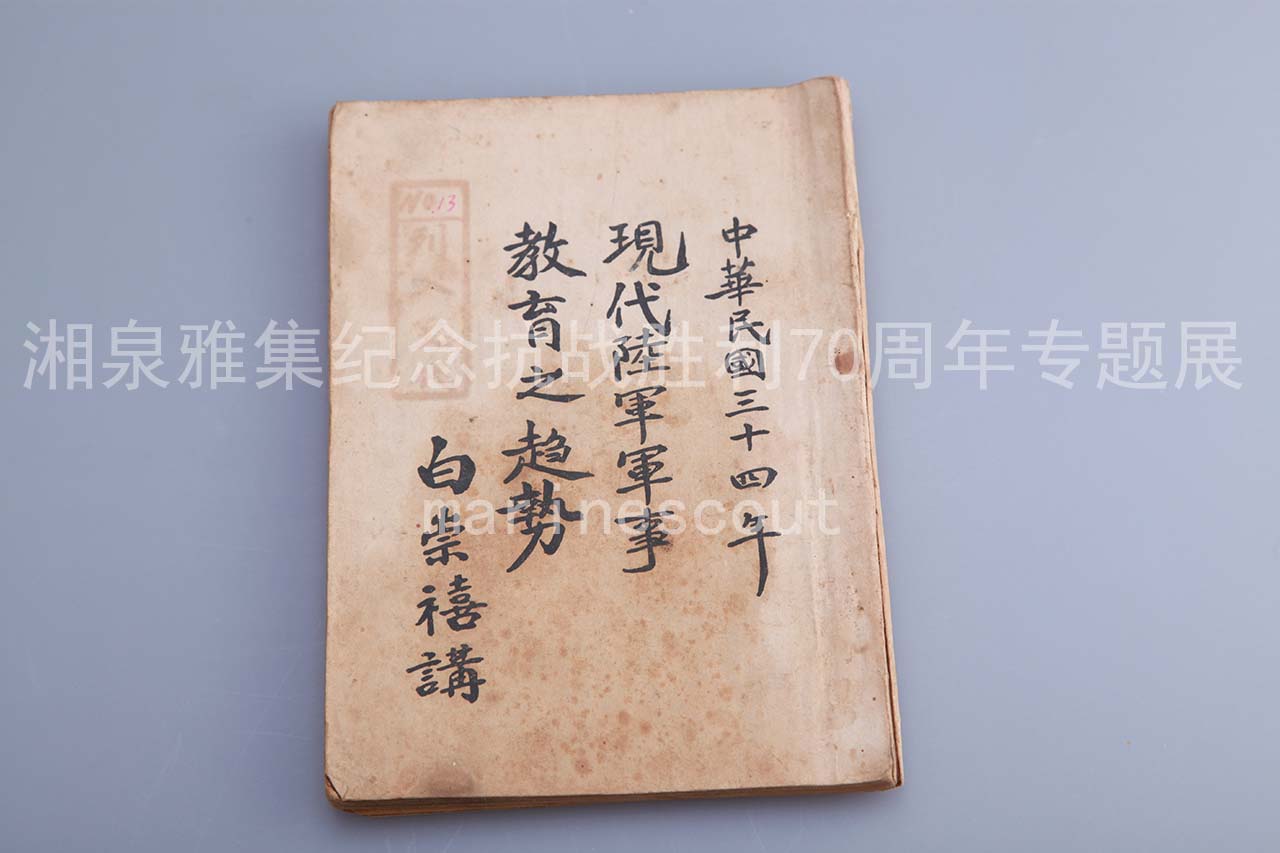 中華民國三十四年
現代陸軍軍事
教育之趨勢
白崇禧講
NO.13
列入
湘泉雅集纪念抗战胜利70周年专题展